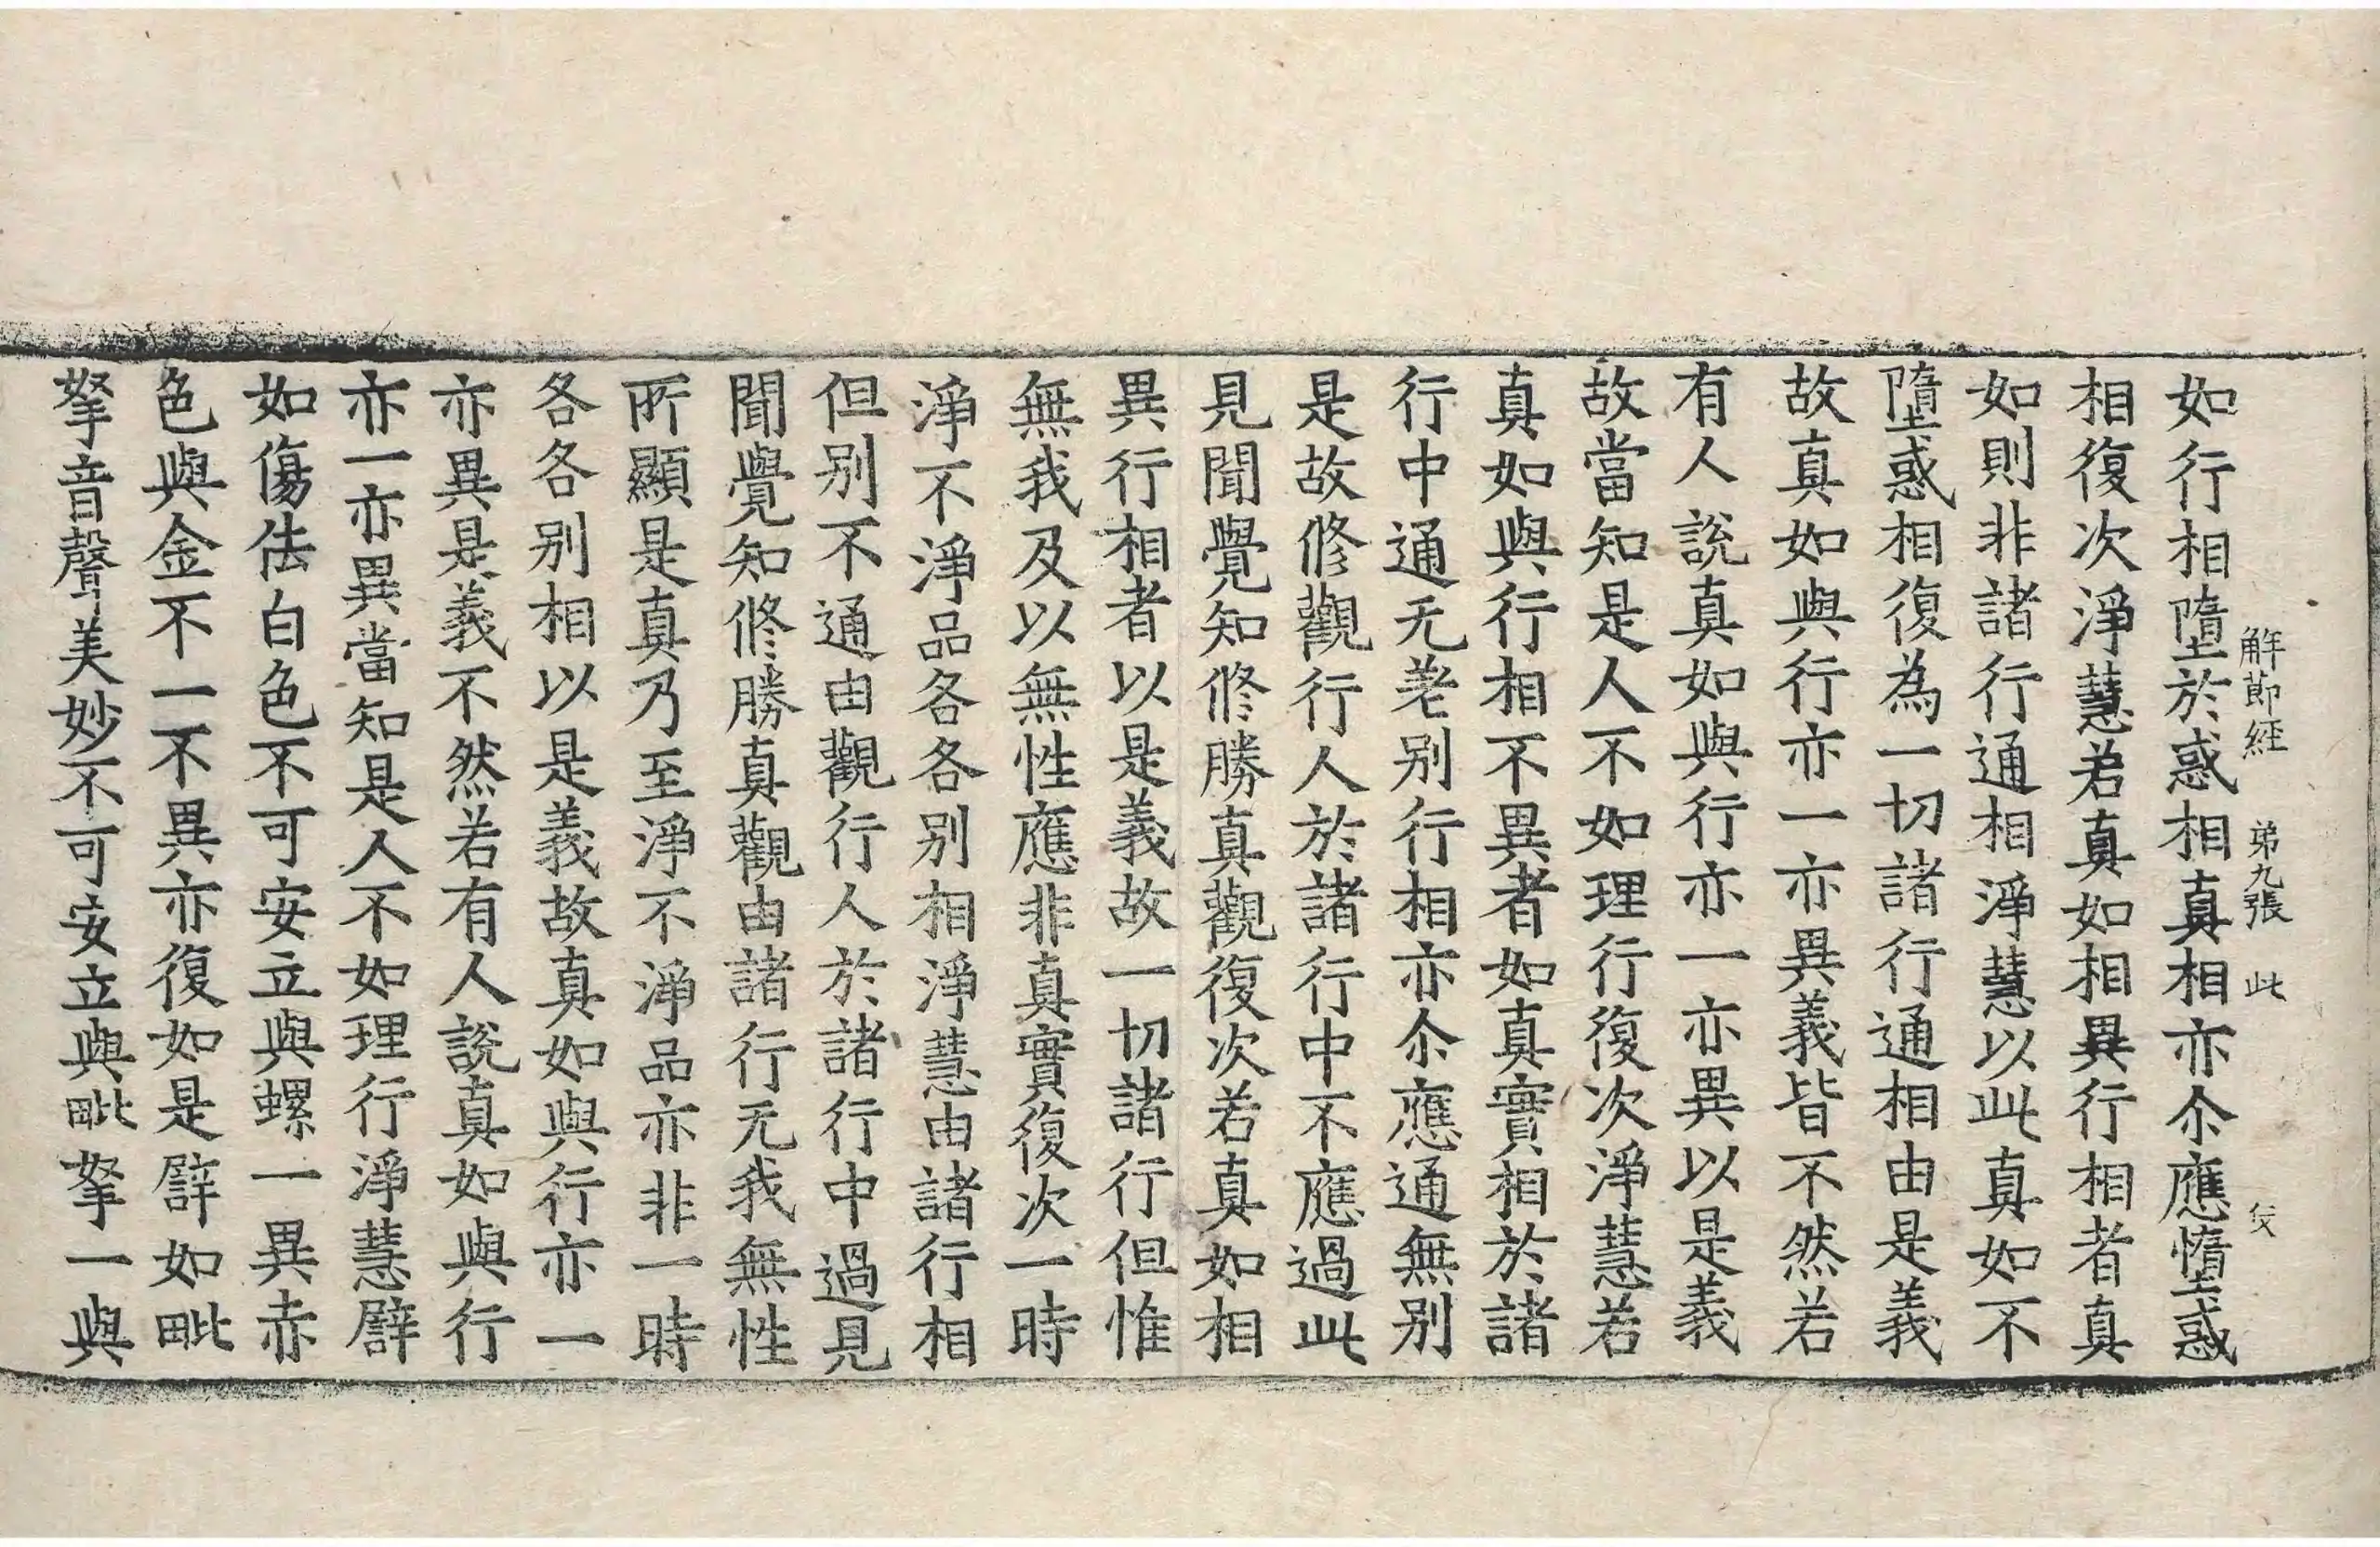 解節經 第九張 此
如行相墮於惑相真相亦尒應憜惑
相復次淨慧若真如相異行相者真
如則非諸行通相淨慧以此真如不
墮惑相復為一切諸行通相由是義
故真如與行亦一亦異義皆不然若
有人說真如與行亦一亦異以是義
故當知是人不如理行復次淨慧若
真如與行相不異者如真實相於諸
行中通无差别行相亦尒應通無别
是故修觀行人於諸行中不應過此
見聞覺知修勝真觀復次若真如相
異行相者以是義故一切諸行但惟
無我及以無性應非真實復次一時
淨不淨品各各别相淨慧由諸行相
但别不通由觀行人於諸行中過見
聞覺知修勝真觀由諸行无我無性
所顯是真乃至淨不淨品亦非一時
各各别相以是義故真如與行亦一
亦異是義不然若有人說真如與行
亦一亦異當知是人不如理行淨慧譬
如傷佉白色不可安立與螺一異赤
色與金不一不異亦復如是譬如毗
拏音聲美妙不可安立與毗拏一與